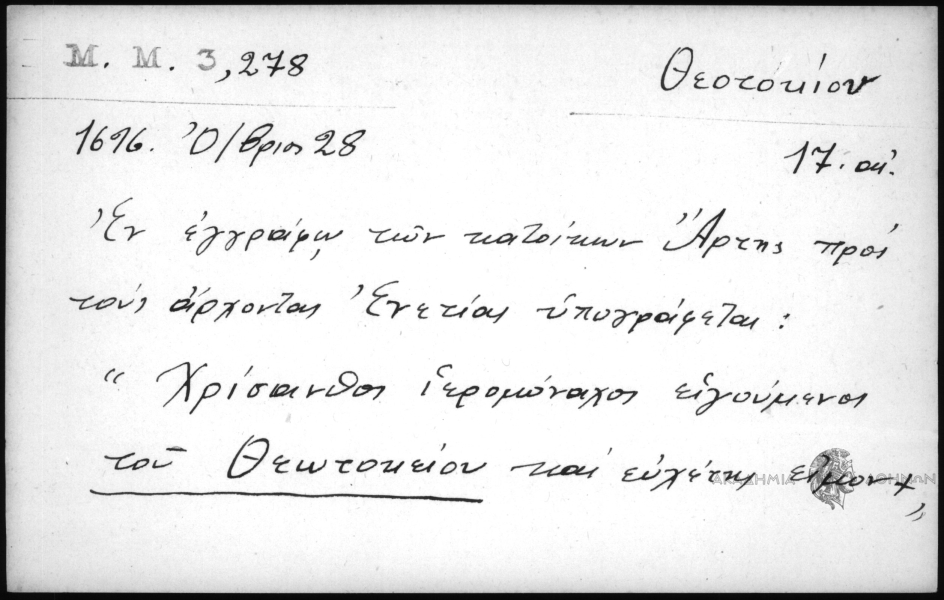 Μ. Μ. 3,278
Θεοτοκίου
1696. Ὀ/βριος 28
17. αἰ.
Ἐν ἐγγράφῳ τῶν κατοίκων Ἄρτης πρὸς
τοὺς ἄρχοντας Ἐνετίας ὑπογράφεται:
“ Χρίσανθος ἱερομόναχος εἱγούμενος
τοῦ Θεωτοκείου καὶ εὐχέτης
ΑΚΑΔΗΜΙΑ ΑΘΗΝΩΝ